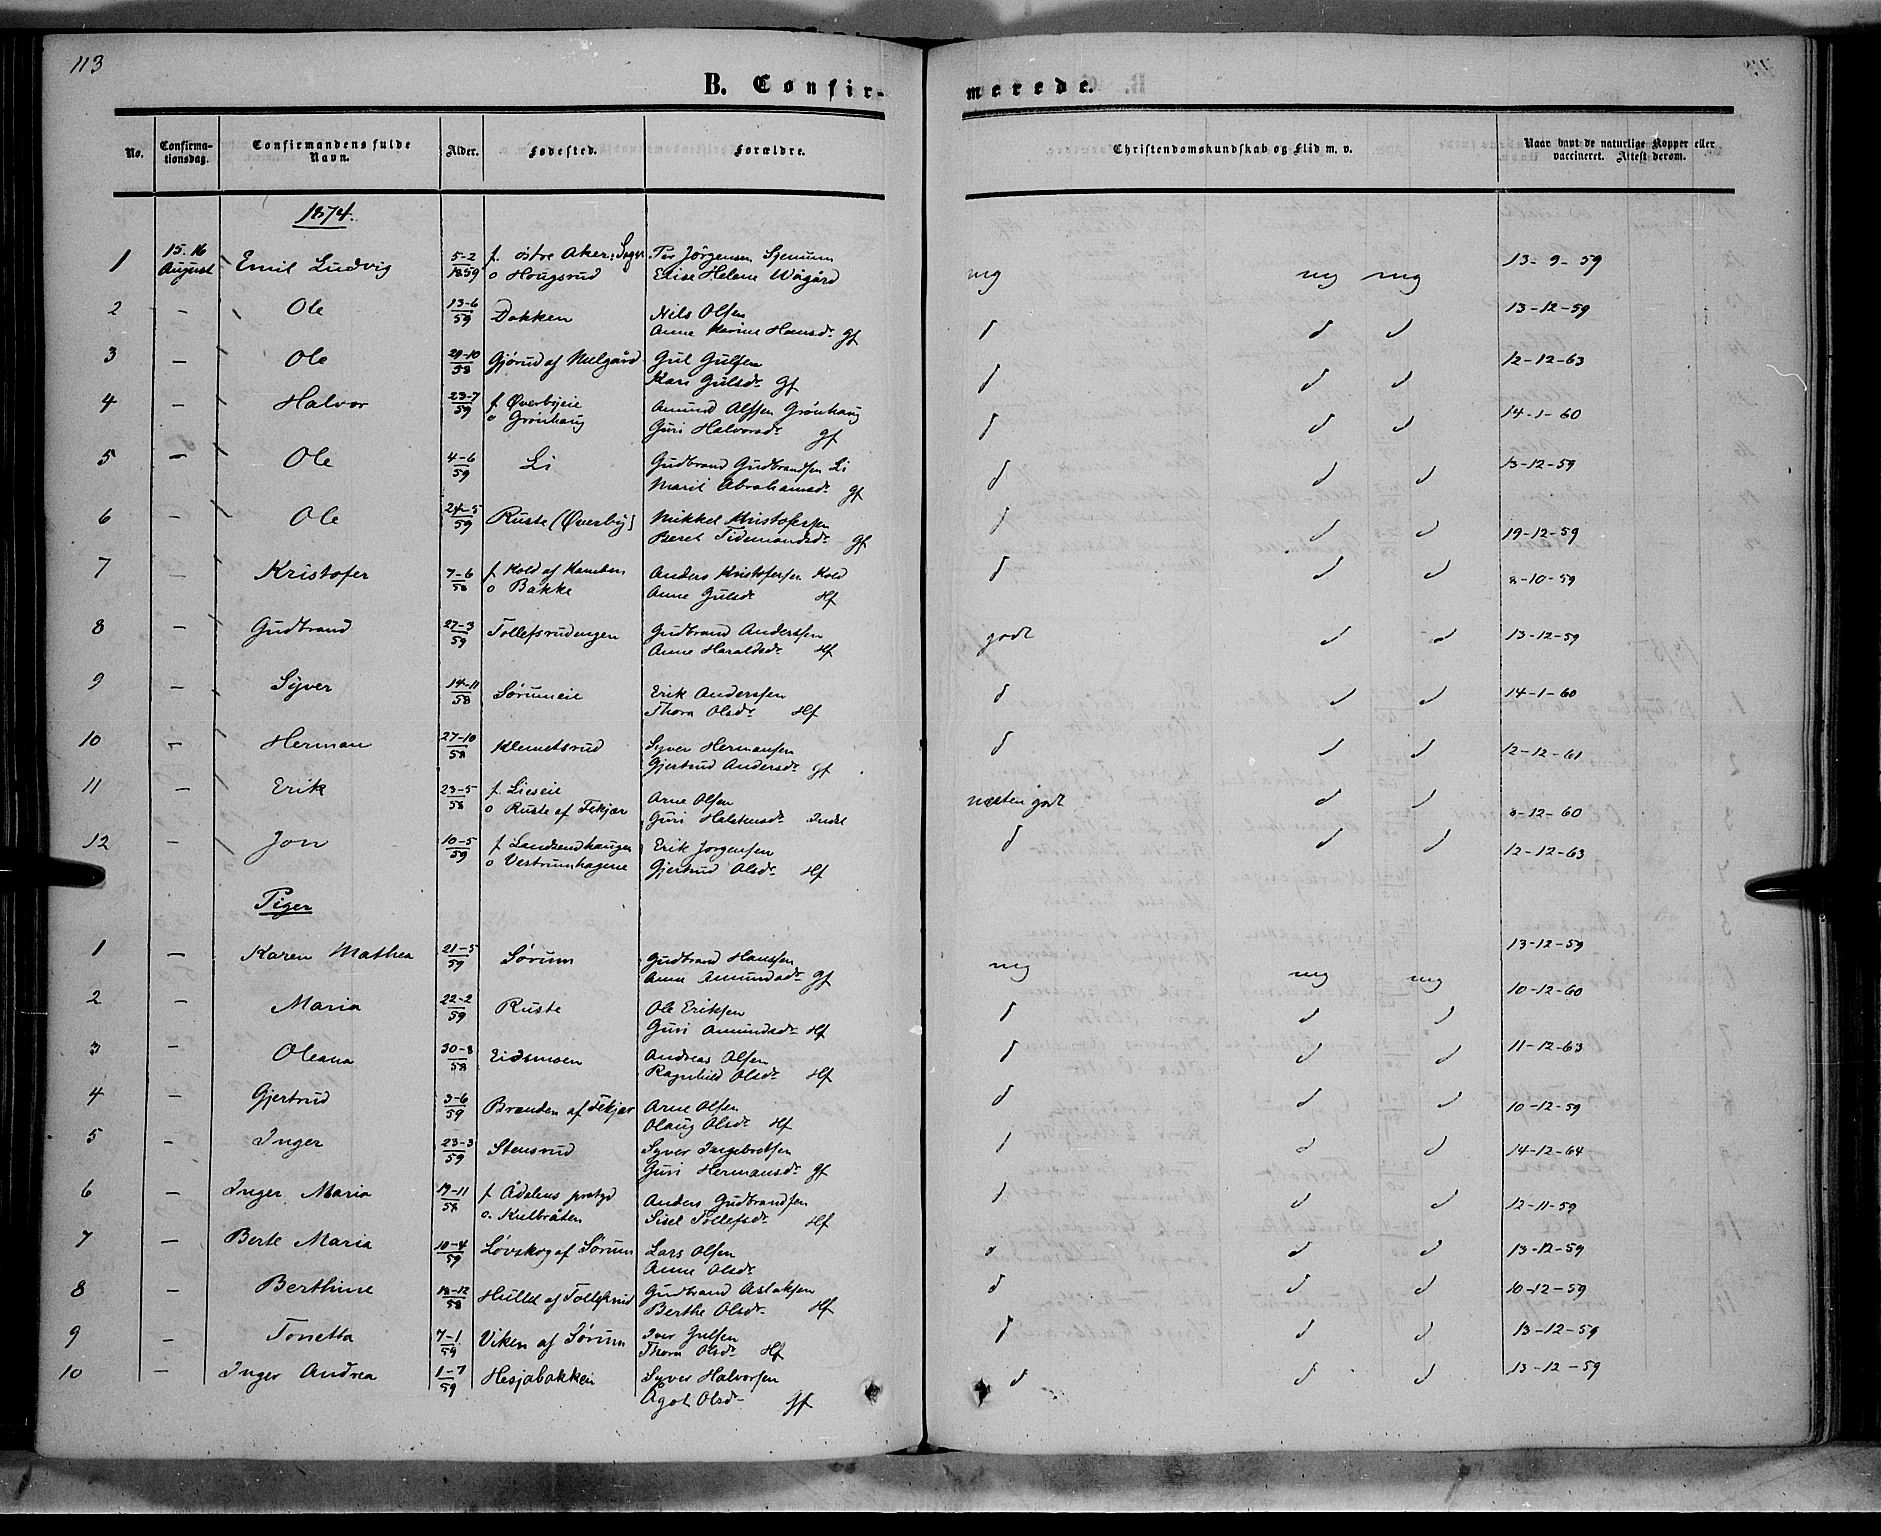 113
B. Confir-
merede.
No. Confirma-tionsdag. Confirmandens fulde Navn. Alder. Fødested. Forældre. Christendomskundskab og Flid m. v. Naar havt de naturlige Kopper eller vaccineret. Attest derom.
1874.
1 15. 16 August Emil Ludvig 5-2 1859 f. østre Aker o Hougsrud Per Jörgensen Elise Helene mg mg mg 13-9-59
2 - Ole 13-6 59 Dokken Nils Olsen Anne Karine Hansdr Gf d d d 13-12-59
3 - Ole 58 Gjørud af Gul Gulsen Kari Gulsdr Gf d d d 12-12-63
4 - Halvor 23-7 59 f. Øverbyeie o Grönhaug Amund Grönhaug Guri Halvorsdr Gf d d d 14-1-60
5 - Ole 4-6 59 Li Gudbrand Gudbrandsen Li Marit Abrahamsdr Gf d d d 13-12-59
6 - Ole 24-5 59 Ruste (Øverby) Mikkel Kristofersen Beret Tidemandsdr Gf d d d 19-12-59
7 - Kristofer 7-6 58 f Kold af o Bakke Anders Kristofersen Kold Anne Gulsdr Hf d d d 8-10-59
8 - Gudbrand 27-3 59 Tollefsrudengen Gudbrand Anderssen Anne Haraldsdr Hf godt d d 13-12-59
9 - Syver 14-11 58 Sørumeie Erik Anderssen Thora Olsdr Hf d d d 14-1-60
10 - Herman 27-10 58 Klemetsrud Syver Hermansen Gjertrud Andersdr Gf d d d 12-12-61
11 - Erik 23-5 58 f. Lieseie o Ruste af Fekjær Arne Olsen Guri Halstensdr Indst næsten godt d d 8-12-60
12 - Jon 10-5 59 f. Landsendhaugen o Vestrumhagene Erik Jorgensen Gjertrud Olsdr Hf d d d 12-12-63
Piger
1 - Karen Mathea 21-5 59 Sørum Gudbrand Hanssen Anne Amundsdr Gf mg mg mg 13-12-59
2 - Maria 22-2 59 Ruste Ole Eriksen Guri Amundsdr Hf d d d 10-12-60
3 - Oleana 30-8 58 Eidsmoen Andreas Olsen Ragnhild Olsdr Hf d d d 11-12-63
4 - Gjertrud 3-6 59 Braaten af Fekjær Arne Olsen Olaug Olsdr Hf d d d 10-12-59
5 - Inger 23-3 59 Stensrud Syver Ingebretsen Guri Hermansdr Gf d d d 14-12-64
6 - Inger Maria 58 f Ådalens prstgd o. Kulbråten Anders Gudbrandsen Sisel Tollefsdr Hf d d d 12-11-59
7 - Berte Maria 10-4 59 Løvskog af Sørum Lars Olsen Anne Olsdr d d d 13-12-59
8 - Berthine 18-12 58 Hullet af Tollefsrud Gudbrand Aslaksen Berthe Olsdr Hf d d d 10-12-59
9 - Tonetta 7-1 59 Viken af Sørum Iver Gulsen Thora Olsdr Hf d d d 13-12-59
10 - Inger Andrea 1-7 59 Hesjabakken Syver Halvorsen Ågot Olsdr Gf d d d 13-12-59